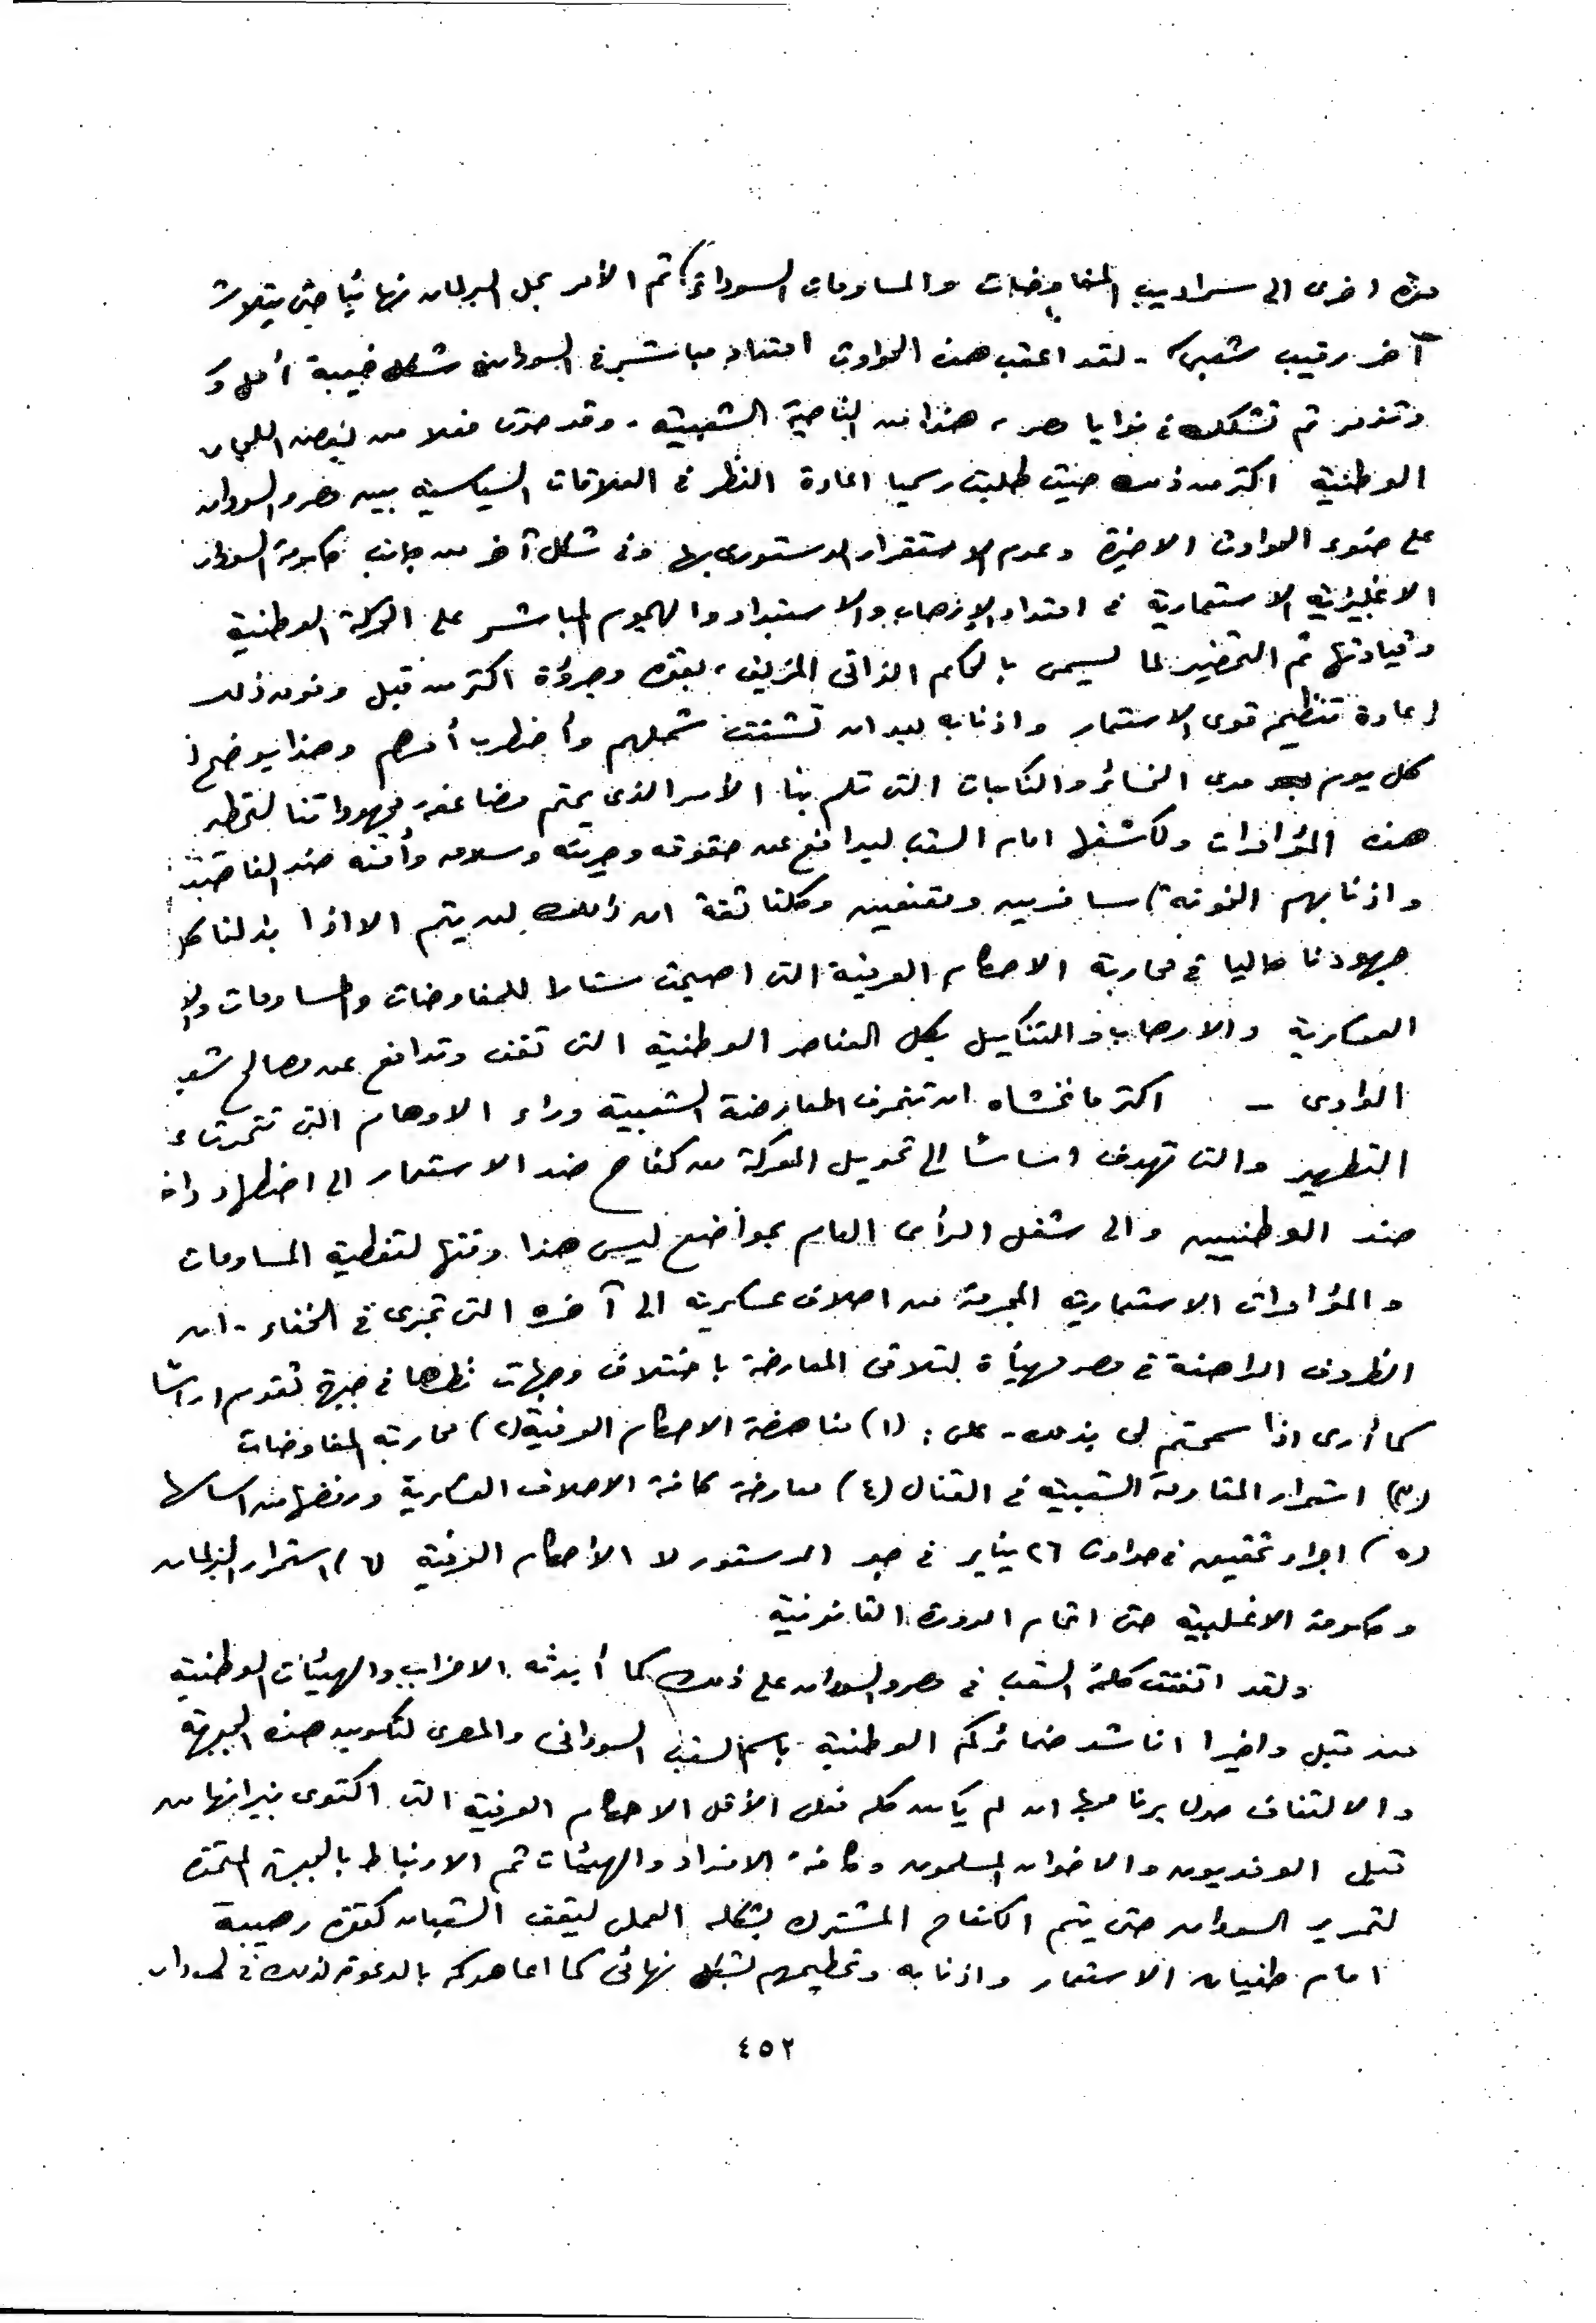 مرة اخرى الى سراديب المفاوضات والمساومات السوداء ثم الأمر بحل البرلمان نهائيا حتى يتلاشى
آخر رقيب شعبى - لقد اعقب هذه الحوادث امتداد مباشر فى السودان فى شكل خيبة أمل و
وتذمر ثم تشكك فى نوايا مصر، هذا من الناحية الشعبية - وقد حدث فعلا من بعض اللجان
الوطنية اكثر من ذلك حيث طلبت رسميا اعادة النظر فى العلاقات السياسية بين مصر والسودان
على ضوء الحوادث الاخيرة وعدم الاستقرار الدستورى بها وفى شكل آخر من جانب حكومة السودان
الانجليزية الاستعمارية فى امتداد الإرهاب والاستبداد والهجوم المباشر على الحركة الوطنية
وقيادتها ثم التحضير لما يسمى بالحكم الذاتى المزيف، بقوة وجرؤة اكثر من قبل وفوق ذلك
اعادة تنظيم قوى الاستعمار واذنابه بعد ان تشتت شملهم وأضطرب أمرهم وهذا يوضح فى
كل يوم مدى الخسائر والنكبات التى تلم بنا الأمر الذى يحتم مضاعفة مجهوداتنا لتحطيم
هذه المؤامرات وكشفها امام الشعب ليدافع عن حقوقه وحريته وسلامه وأمنه ضد الغاصبين
واذنابهم الخونة سافرين ومقنعين وكلنا ثقة ان ذلك لن يتم الا اذا بذلنا كل
جهودنا حاليا فى محاربة الاحكام العرفية التى اصبحت ستارا للمفاوضات والمساومات
العسكرية والارهاب والتنكيل بكل العناصر الوطنية التى تقف وتدافع عن مصالح شعب
الوادى - اكثر ما نخشاه ان تنجرف المعارضة الشعبية وراء الاوهام التى تتحدث عن
التطهير والتى تهدف اساسا الى تحويل المعركة من كفاح ضد الاستعمار الى اضطهاد
ضد الوطنيين والى شغل الرأى العام بمواضع ليس هذا وقتها لتغطية المساومات
والمؤامرات الاستعمارية المجرمة من احلاف عسكرية الى آخره التى تجرى فى الخفاء - ان
الظروف الراهنة فى مصر مهيأة لتلاقى المعارضة باختلاف وجهات نظرها فى جبهة تقوم اساسا
كما أرى اذا سمحتم لى بذلك - على: (١) مناهضة الاحكام العرفية (٢) محاربة المفاوضات
(٣) استمرار المقاومة الشعبية فى القنال (٤) معارضة كافة الاحلاف العسكرية ورفضها من اساسها
(٥) اجراء تحقيق فى حوادث ٢٦ يناير فى جو الدستور لا الأحكام العرفية (٦) استمرار البرلمان
وحكومة الاغلبية حتى اتمام الدورة القانونية
ولقد اتفقت كلمة الشعب فى مصر والسودان على ذلك كما أيدته الاحزاب والهيئات الوطنية
من قبل واخيرا اناشد ضمائركم الوطنية باسم الشعب السودانى والمصرى لتكوين هذه الجبهة
والالتفاف حول برنامجها ان لم يكن كله فعلى الأقل الاحكام العرفية التى اكتوى بنيرانها من
قبل الوفديون والاخوان المسلمون وكافة الافراد والهيئات ثم الارتباط بالجبهة المتحدة
لتحرير السودان حتى يتم الكفاح المشترك بشكله العملى ليقف الشعبان كقوة رهيبة
امام طغيان الاستعمار واذنابه وتحطيمهم بشكل نهائى كما اعاهدكم بالدعوة لذلك فى السودان
٤٥٢